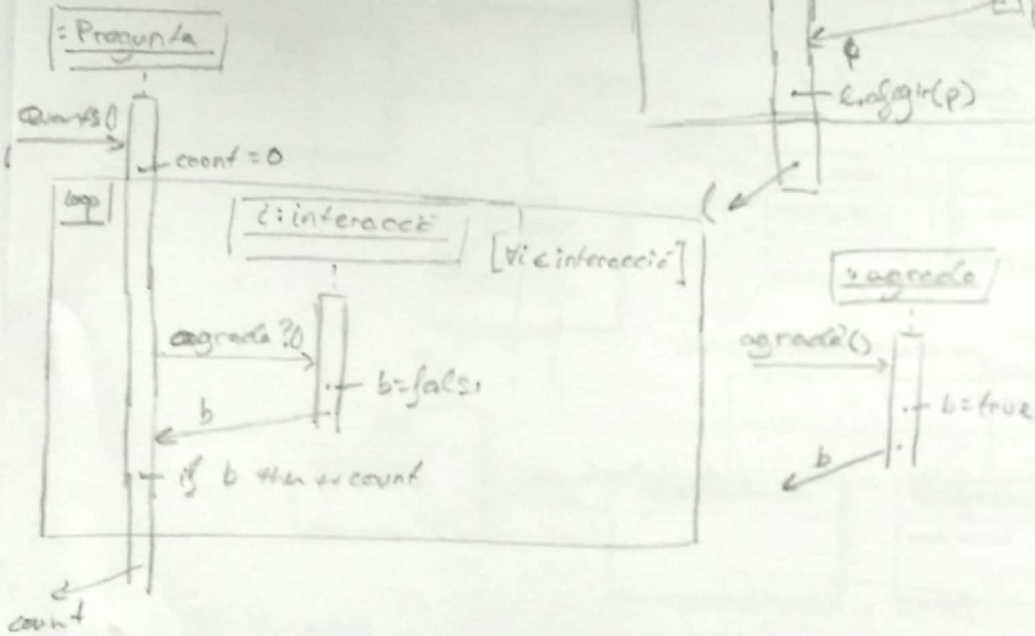 : Pregunta
Quants()
count = 0
loop
i : interacció
[∀i ∈ interacció]
agrada?()
b = false
b
if b then ++count
count
p
c.afegir(p)
: agrada
agrada?()
b = true
b